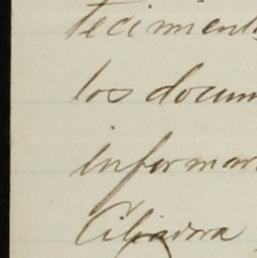 tecimient
los docum
informar